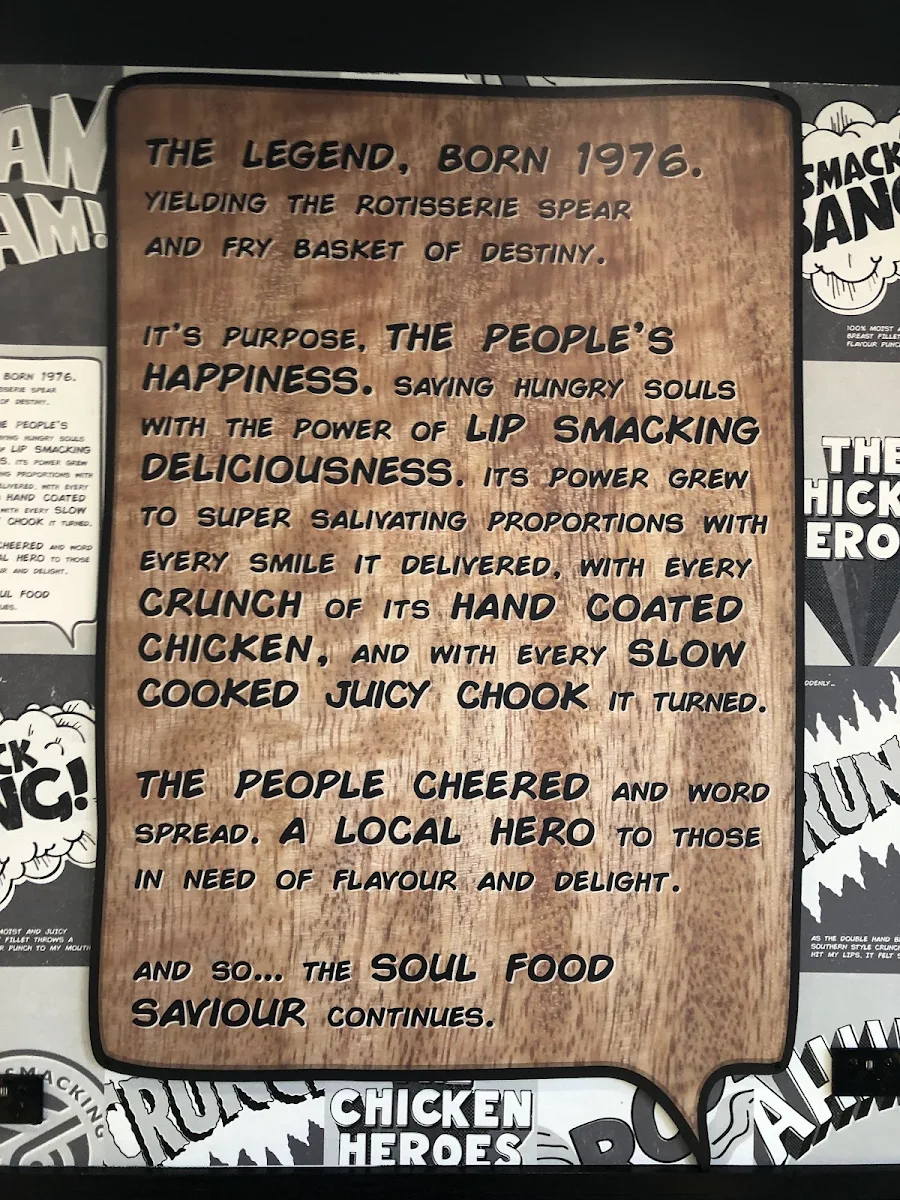 THE LEGEND, BORN 1976.
YIELDING THE ROTISSERIE SPEAR
AND FRY BASKET OF DESTINY.
IT'S PURPOSE, THE PEOPLE'S
HAPPINESS. SAVING HUNGRY SOULS
WITH THE POWER OF LIP SMACKING
DELICIOUSNESS. ITS POWER GREW
TO SUPER SALIVATING PROPORTIONS WITH
EVERY SMILE IT DELIVERED, WITH EVERY
CRUNCH OF ITS HAND COATED
CHICKEN, AND WITH EVERY SLOW
COOKED JUICY CHOOK IT TURNED.
THE PEOPLE CHEERED AND WORD
SPREAD. A LOCAL HERO TO THOSE
IN NEED OF FLAVOUR AND DELIGHT.
AND SO... THE SOUL FOOD
SAVIOUR CONTINUES.
BORN 1976.
SPEAR
OF DESTINY.
PEOPLE'S
HUNGRY SOULS
LIP SMACKING
ITS POWER GREW
PROPORTIONS WITH
WITH EVERY
HAND COATED
WITH EVERY SLOW
CHOOK IT TURNED.
CHEERED AND WORD
HERO TO THOSE
AND DELIGHT.
FOOD
MOIST AND JUICY
FILLET THROWS A
PUNCH TO MY MOUTH
SMACKING
CHICKEN
HEROES
SMACK
BANG
100% MOIST
BREAST FILLET
FLAVOUR
THE
AS THE DOUBLE HAND
SOUTHERN STYLE
HIT MY LIPS, IT FELT